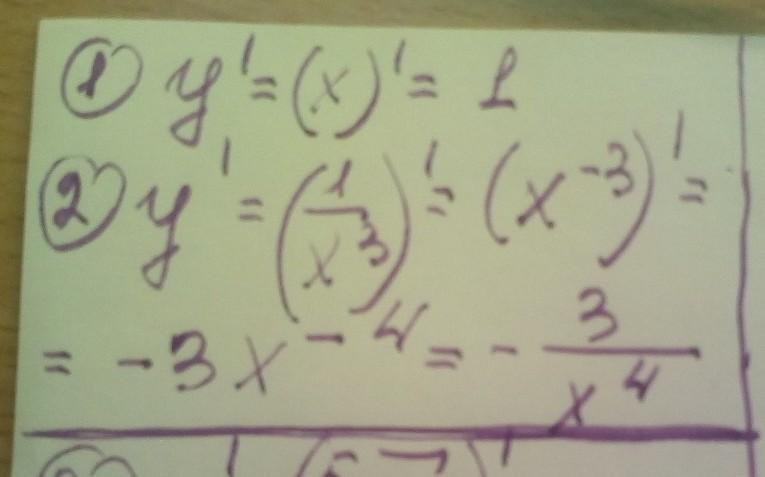 ① y' = (x)' = 1
② y' = (1/x³)' = (x⁻³)' =
= -3x⁻⁴ = - 3/x⁴